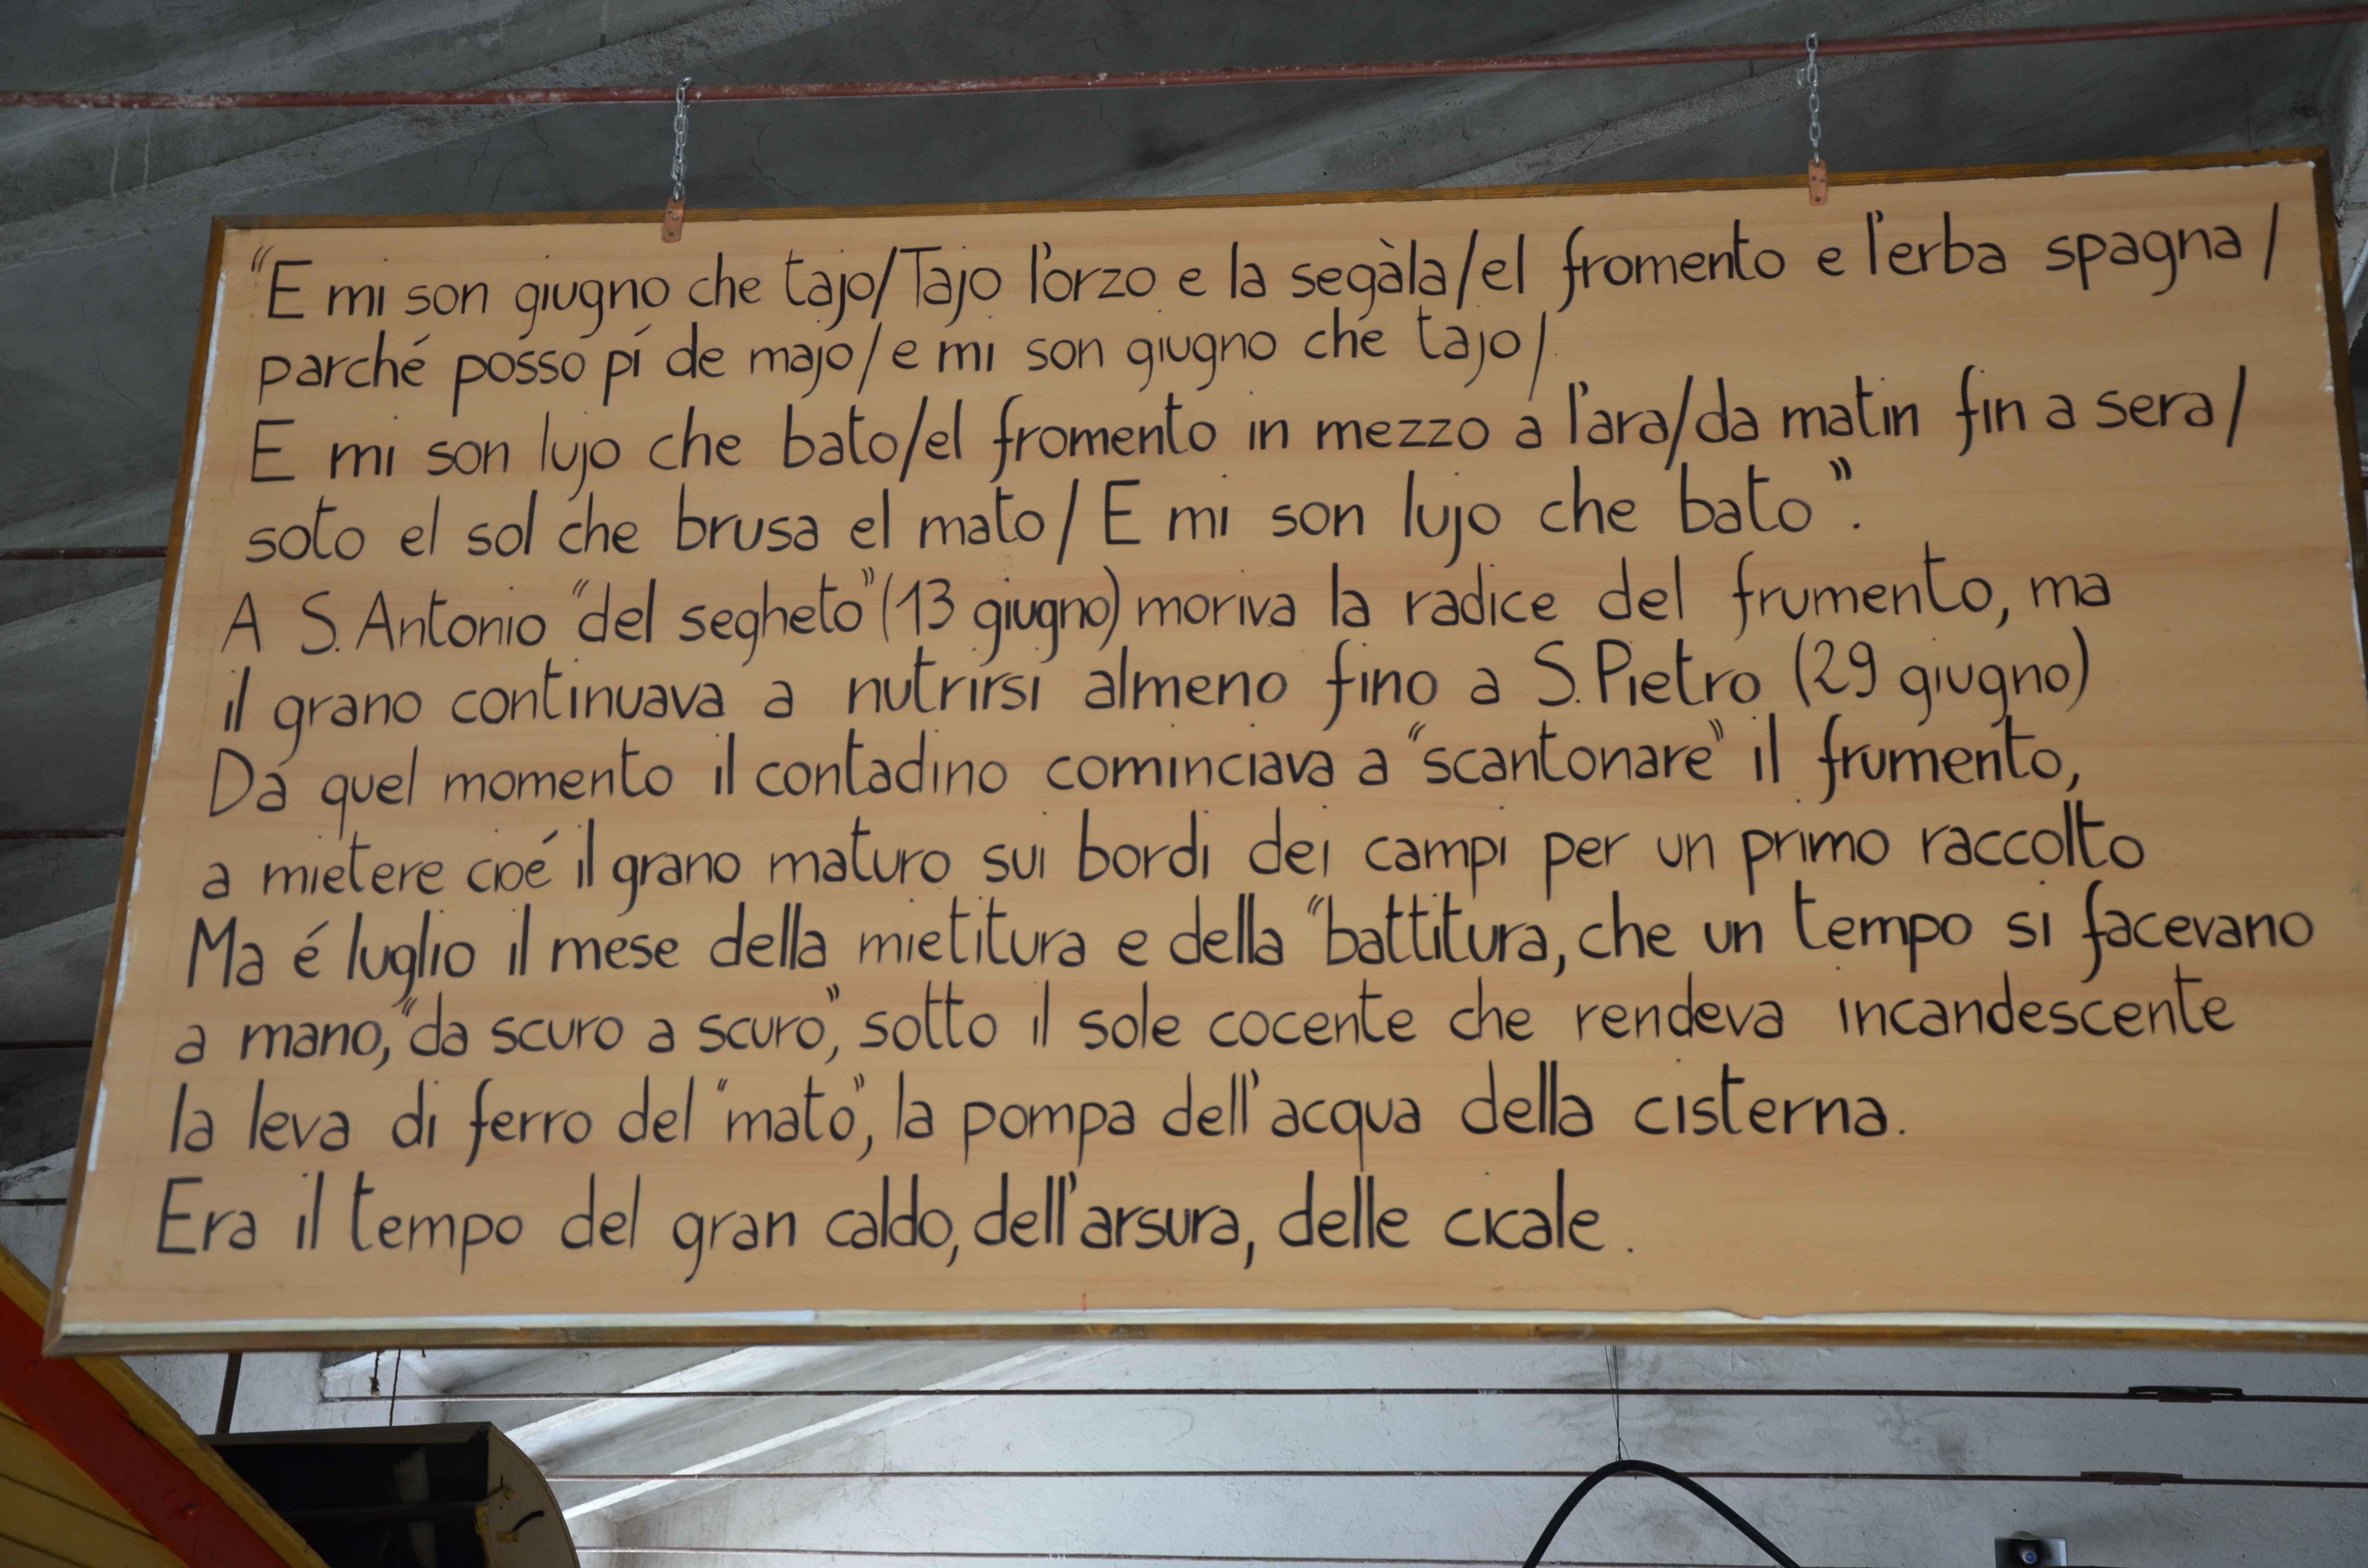 “E mi son giugno che tajo/Tajo l'orzo e la segàla/el fromento e l'erba spagna/
parché posso pí de majo/e mi son giugno che tajo/
E mi son lujo che bato/el fromento in mezzo a l'ara/da matin fin a sera/
soto el sol che brusa el mato/E mi son lujo che bato”.
A S. Antonio “del segheto” (13 giugno) moriva la radice del frumento, ma
il grano continuava a nutrirsi almeno fino a S. Pietro (29 giugno)
Da quel momento il contadino cominciava a “scantonare” il frumento,
a mietere cioé il grano maturo sui bordi dei campi per un primo raccolto
Ma é luglio il mese della mietitura e della “battitura, che un tempo si facevano
a mano, “da scuro a scuro”, sotto il sole cocente che rendeva incandescente
la leva di ferro del “mato”, la pompa dell'acqua della cisterna.
Era il tempo del gran caldo, dell'arsura, delle cicale.